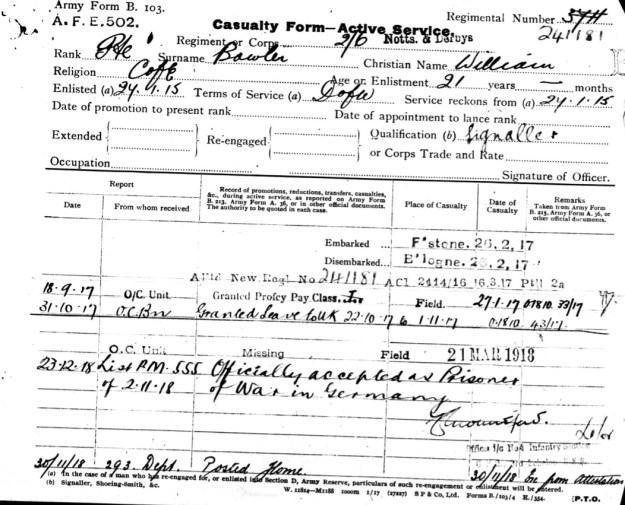 Army Form B. 103.
A. F. E. 502.
Casualty Form—Active Service.
Regimental Number
241181
Rank Pte Regiment or Corps 2/6 Notts. & Derbys
Surname Bowler Christian Name William
Religion C of E Age on Enlistment 21 years — months
Enlisted (a) 24.1.15 Terms of Service (a) D of W Service reckons from (a) 24.1.15
Date of promotion to present rank Date of appointment to lance rank
Extended Re-engaged Qualification (b) Signaller
or Corps Trade and Rate
Occupation Signature of Officer.
Report
Date From whom received
Record of promotions, reductions, transfers, casualties,
&c., during active service, as reported on Army Form
B. 213, Army Form A. 36, or in other official documents.
The authority to be quoted in each case.
Place of Casualty
Date of
Casualty
Remarks
Taken from Army Form
B. 213, Army Form A. 36, or
other official documents.
Embarked ... F'stone. 26.2.17
Disembarked ... B'logne. 26.2.17
New Regl No 241181 ACI 2414/16 16.3.17 2a
18.9.17 O/C. Unit Granted Profcy Pay Class I Field. 27.1.17 33/17
31.10.17 O.C. Bn Granted Leave to UK 22.10.17 to 1.11.17 43/17
O.C. Unit Missing Field 21 MAR 1918
23.12.18 List P.M. 555 Officially accepted as Prisoner
of 2.11.18 of War in Germany
Infantry
30/11/18 293. Dept. Posted Home. 30/11/18 from
(a) In the case of a man who has re-engaged for, or enlisted into Section D, Army Reserve, particulars of such re-engagement or enlistment will be entered.
(b) Signaller, Shoeing-Smith, &c.
1/17 S P & Co, Ltd. Forms B./103/4
[P.T.O.